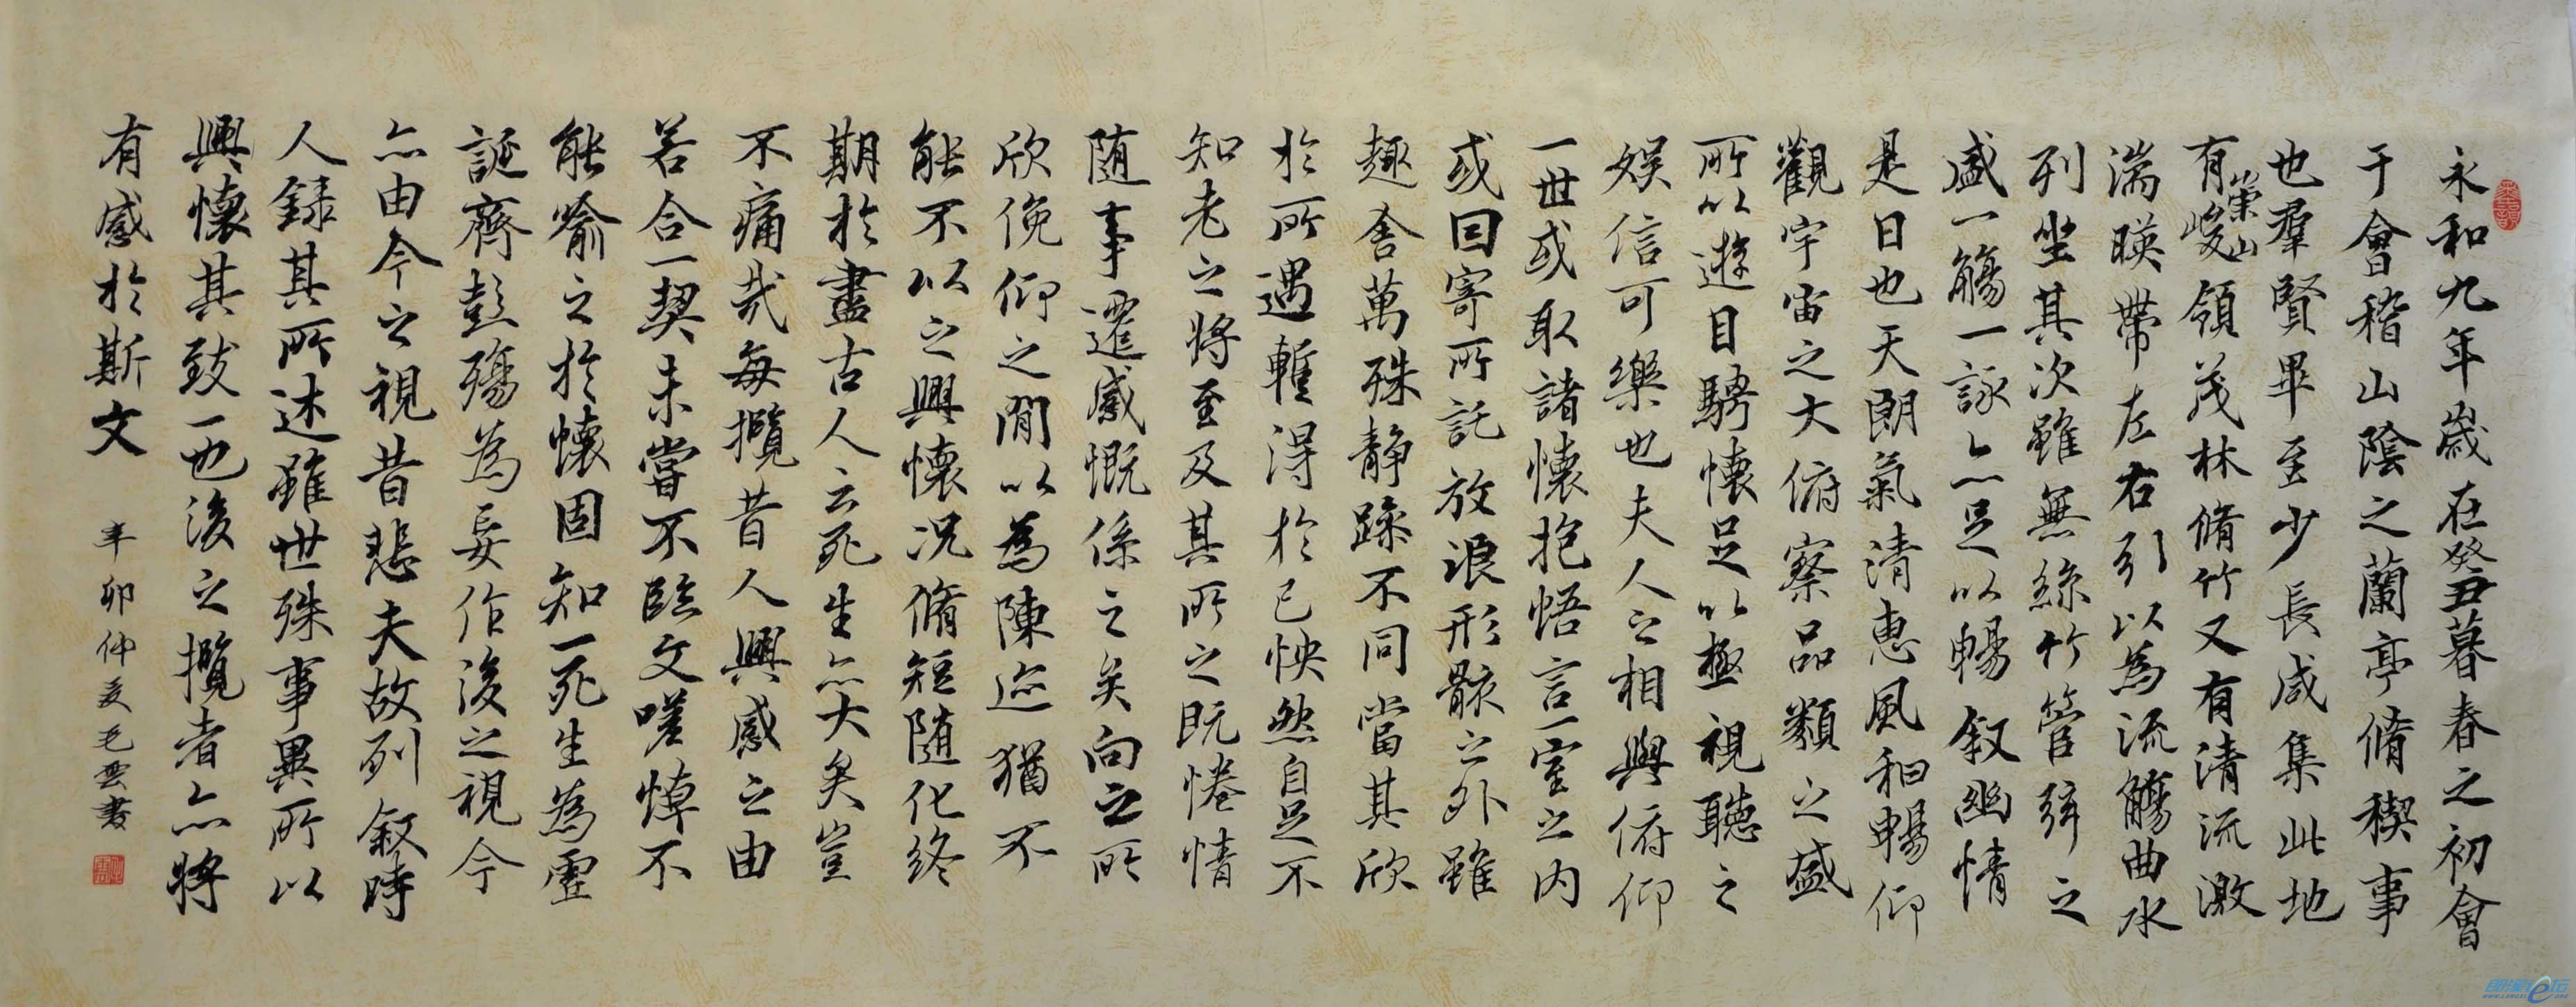 永和九年歲在癸丑暮春之初會
于會稽山陰之蘭亭脩稧事
也羣賢畢至少長咸集此地
有崇山峻領茂林脩竹又有清流激
湍暎帶左右引以為流觴曲水
列坐其次雖無絲竹管弦之
盛一觴一詠亦足以暢叙幽情
是日也天朗氣清惠風和暢仰
觀宇宙之大俯察品類之盛
所以遊目騁懷足以極視聽之
娛信可樂也夫人之相與俯仰
一世或取諸懷抱悟言一室之内
或因寄所託放浪形骸之外雖
趣舍萬殊静躁不同當其欣
於所遇暫得於己怏然自足不
知老之將至及其所之既惓情
随事遷感慨係之矣向之所
欣俛仰之閒以為陳迹猶不
能不以之興懷況脩短随化終
期於盡古人云死生亦大矣豈
不痛哉每攬昔人興感之由
若合一契未嘗不臨文嗟悼不
能喻之於懷固知一死生為虛
誕齊彭殤為妄作後之視今
亦由今之視昔悲夫故列叙時
人録其所述雖世殊事異所以
興懷其致一也後之攬者亦將
有感於斯文
辛卯仲夏毛雲書